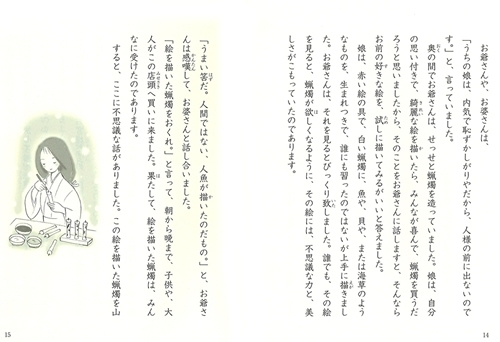 お爺さんや、お婆さんは、
「うちの娘は、内気で恥ずかしがりやだから、人様の前に出ないので
す。」と、言っていました。
奥の間でお爺さんは、せっせと蝋燭を造っていました。娘は、自分
の思い付きで、綺麗な絵を描いたら、みんなが喜んで、蝋燭を買うだ
ろうと思いましたから、そのことをお爺さんに話しますと、そんなら
お前の好きな絵を、試しに描いてみるがいいと答えました。
娘は、赤い絵の具で、白い蝋燭に、魚や、貝や、または海草のよう
なものを、生まれつきで、誰にも習ったのではないが上手に描きまし
た。お爺さんは、それを見るとびっくり致しました。誰でも、その絵
を見ると、蝋燭が欲しくなるように、その絵には、不思議な力と、美
しさがこもっていたのであります。
14
「うまい筈だ。人間ではない、人魚が描いたのだもの。」と、お爺さ
んは感嘆して、お婆さんと話し合いました。
「絵を描いた蝋燭をおくれ。」と言って、朝から晩まで、子供や、大
人がこの店頭へ買いに来ました。果たして、絵を描いた蝋燭は、みん
なに受けたのであります。
すると、ここに不思議な話がありました。この絵を描いた蝋燭を山
15